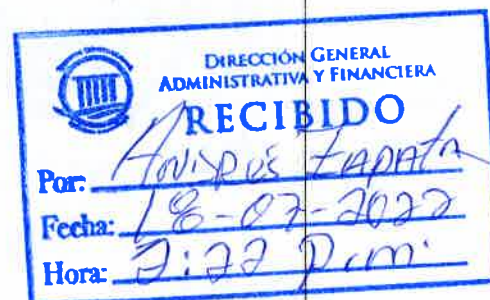 DIRECCIÓN GENERAL
ADMINISTRATIVA Y FINANCIERA
RECIBIDO
Por: Andrés Zapata
Fecha: 18-07-2022
Hora: 2:22 p.m.